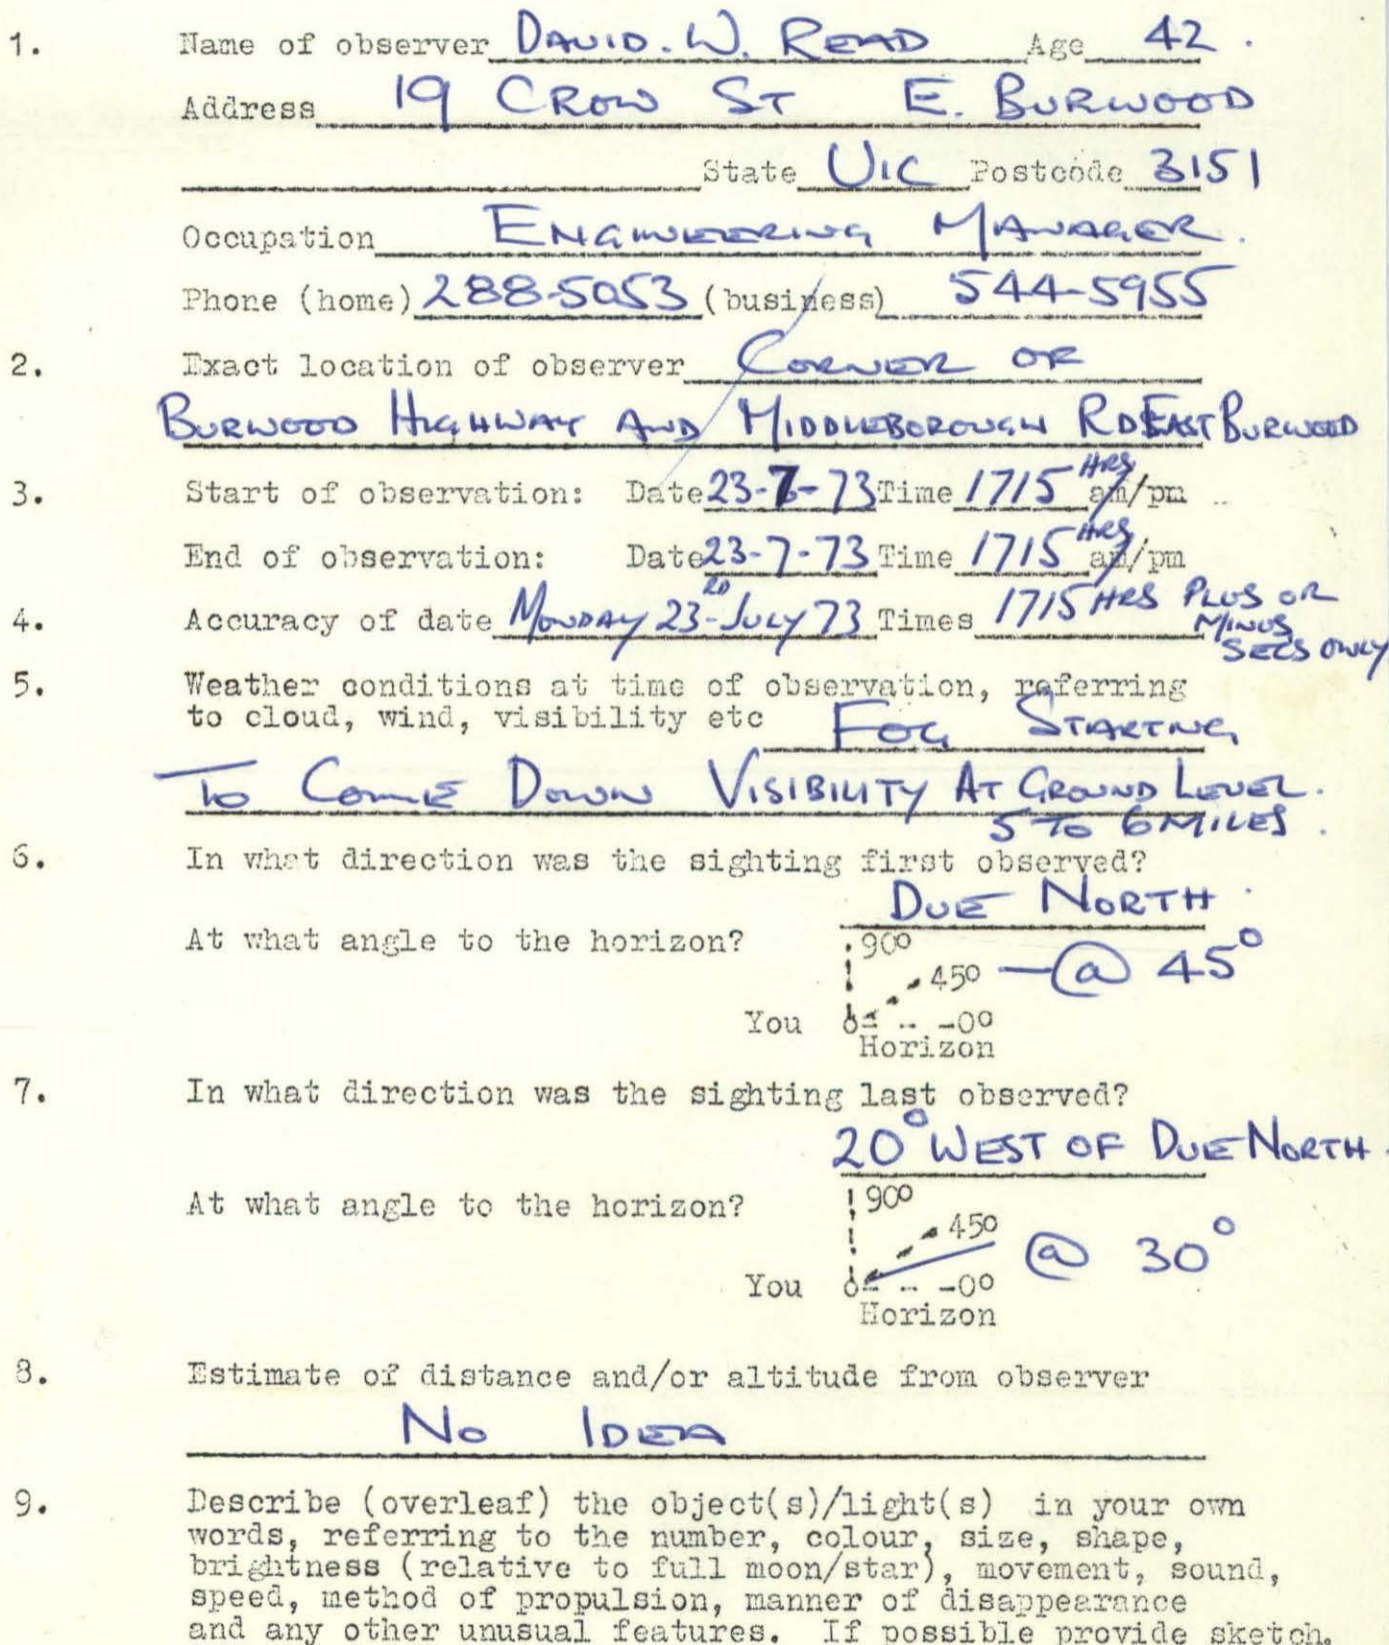 1. Name of observer DAVID. W. READ Age 42.
Address 19 CROW ST E. BURWOOD
State VIC Postcode 3151
Occupation ENGINEERING MANAGER.
Phone (home) 288-5053 (business) 544-5955
2. Exact location of observer CORNER OF
BURWOOD HIGHWAY AND MIDDLEBOROUGH RD EAST BURWOOD
3. Start of observation: Date 23-7-73 Time 1715 HRS am/pm
End of observation: Date 23-7-73 Time 1715 HRS am/pm
4. Accuracy of date MONDAY 23RD JULY 73 Times 1715 HRS PLUS OR
MINUS
SECS ONLY
5. Weather conditions at time of observation, referring
to cloud, wind, visibility etc FOG STARTING
TO COME DOWN VISIBILITY AT GROUND LEVEL.
5 TO 6 MILES.
6. In what direction was the sighting first observed?
DUE NORTH.
At what angle to the horizon? 90°
45° — @ 45°
You -0°
Horizon
7. In what direction was the sighting last observed?
20° WEST OF DUE NORTH.
At what angle to the horizon? 90°
45° @ 30°
You -0°
Horizon
8. Estimate of distance and/or altitude from observer
NO IDEA
9. Describe (overleaf) the object(s)/light(s) in your own
words, referring to the number, colour, size, shape,
brightness (relative to full moon/star), movement, sound,
speed, method of propulsion, manner of disappearance
and any other unusual features. If possible provide sketch.